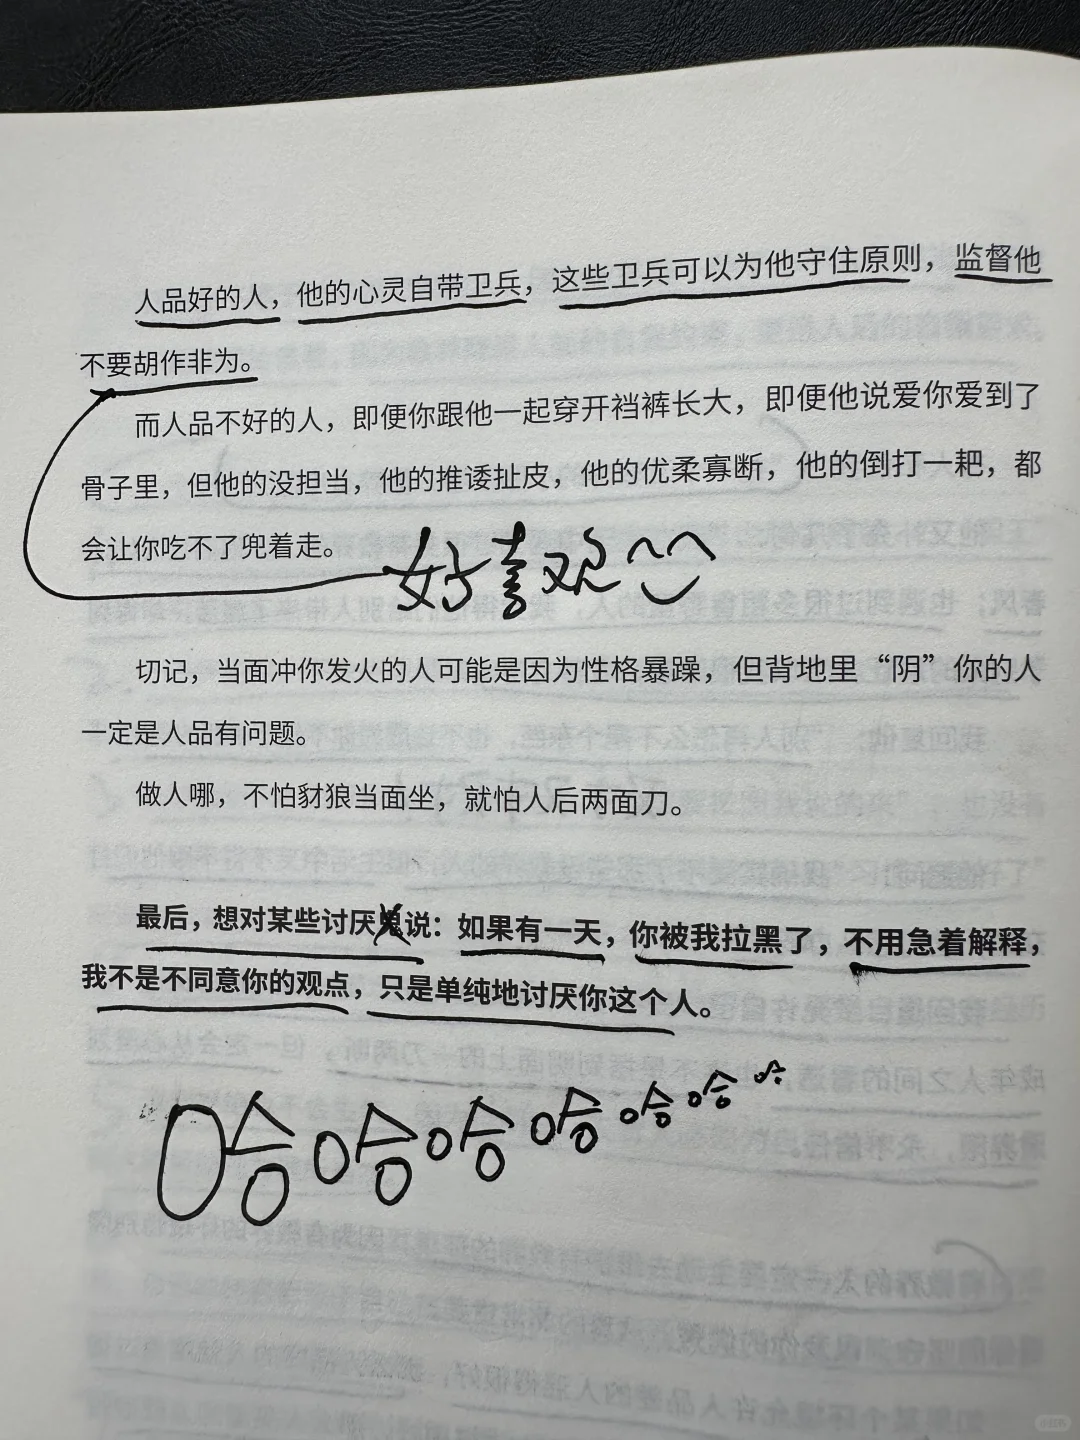 人品好的人，他的心灵自带卫兵，这些卫兵可以为他守住原则，监督他
不要胡作非为。
而人品不好的人，即便你跟他一起穿开裆裤长大，即便他说爱你爱到了
骨子里，但他的没担当，他的推诿扯皮，他的优柔寡断，他的倒打一耙，都
会让你吃不了兜着走。
好喜欢
切记，当面冲你发火的人可能是因为性格暴躁，但背地里“阴”你的人
一定是人品有问题。
做人哪，不怕豺狼当面坐，就怕人后两面刀。
最后，想对某些讨厌鬼说：如果有一天，你被我拉黑了，不用急着解释，
我不是不同意你的观点，只是单纯地讨厌你这个人。
哈哈哈哈哈哈哈